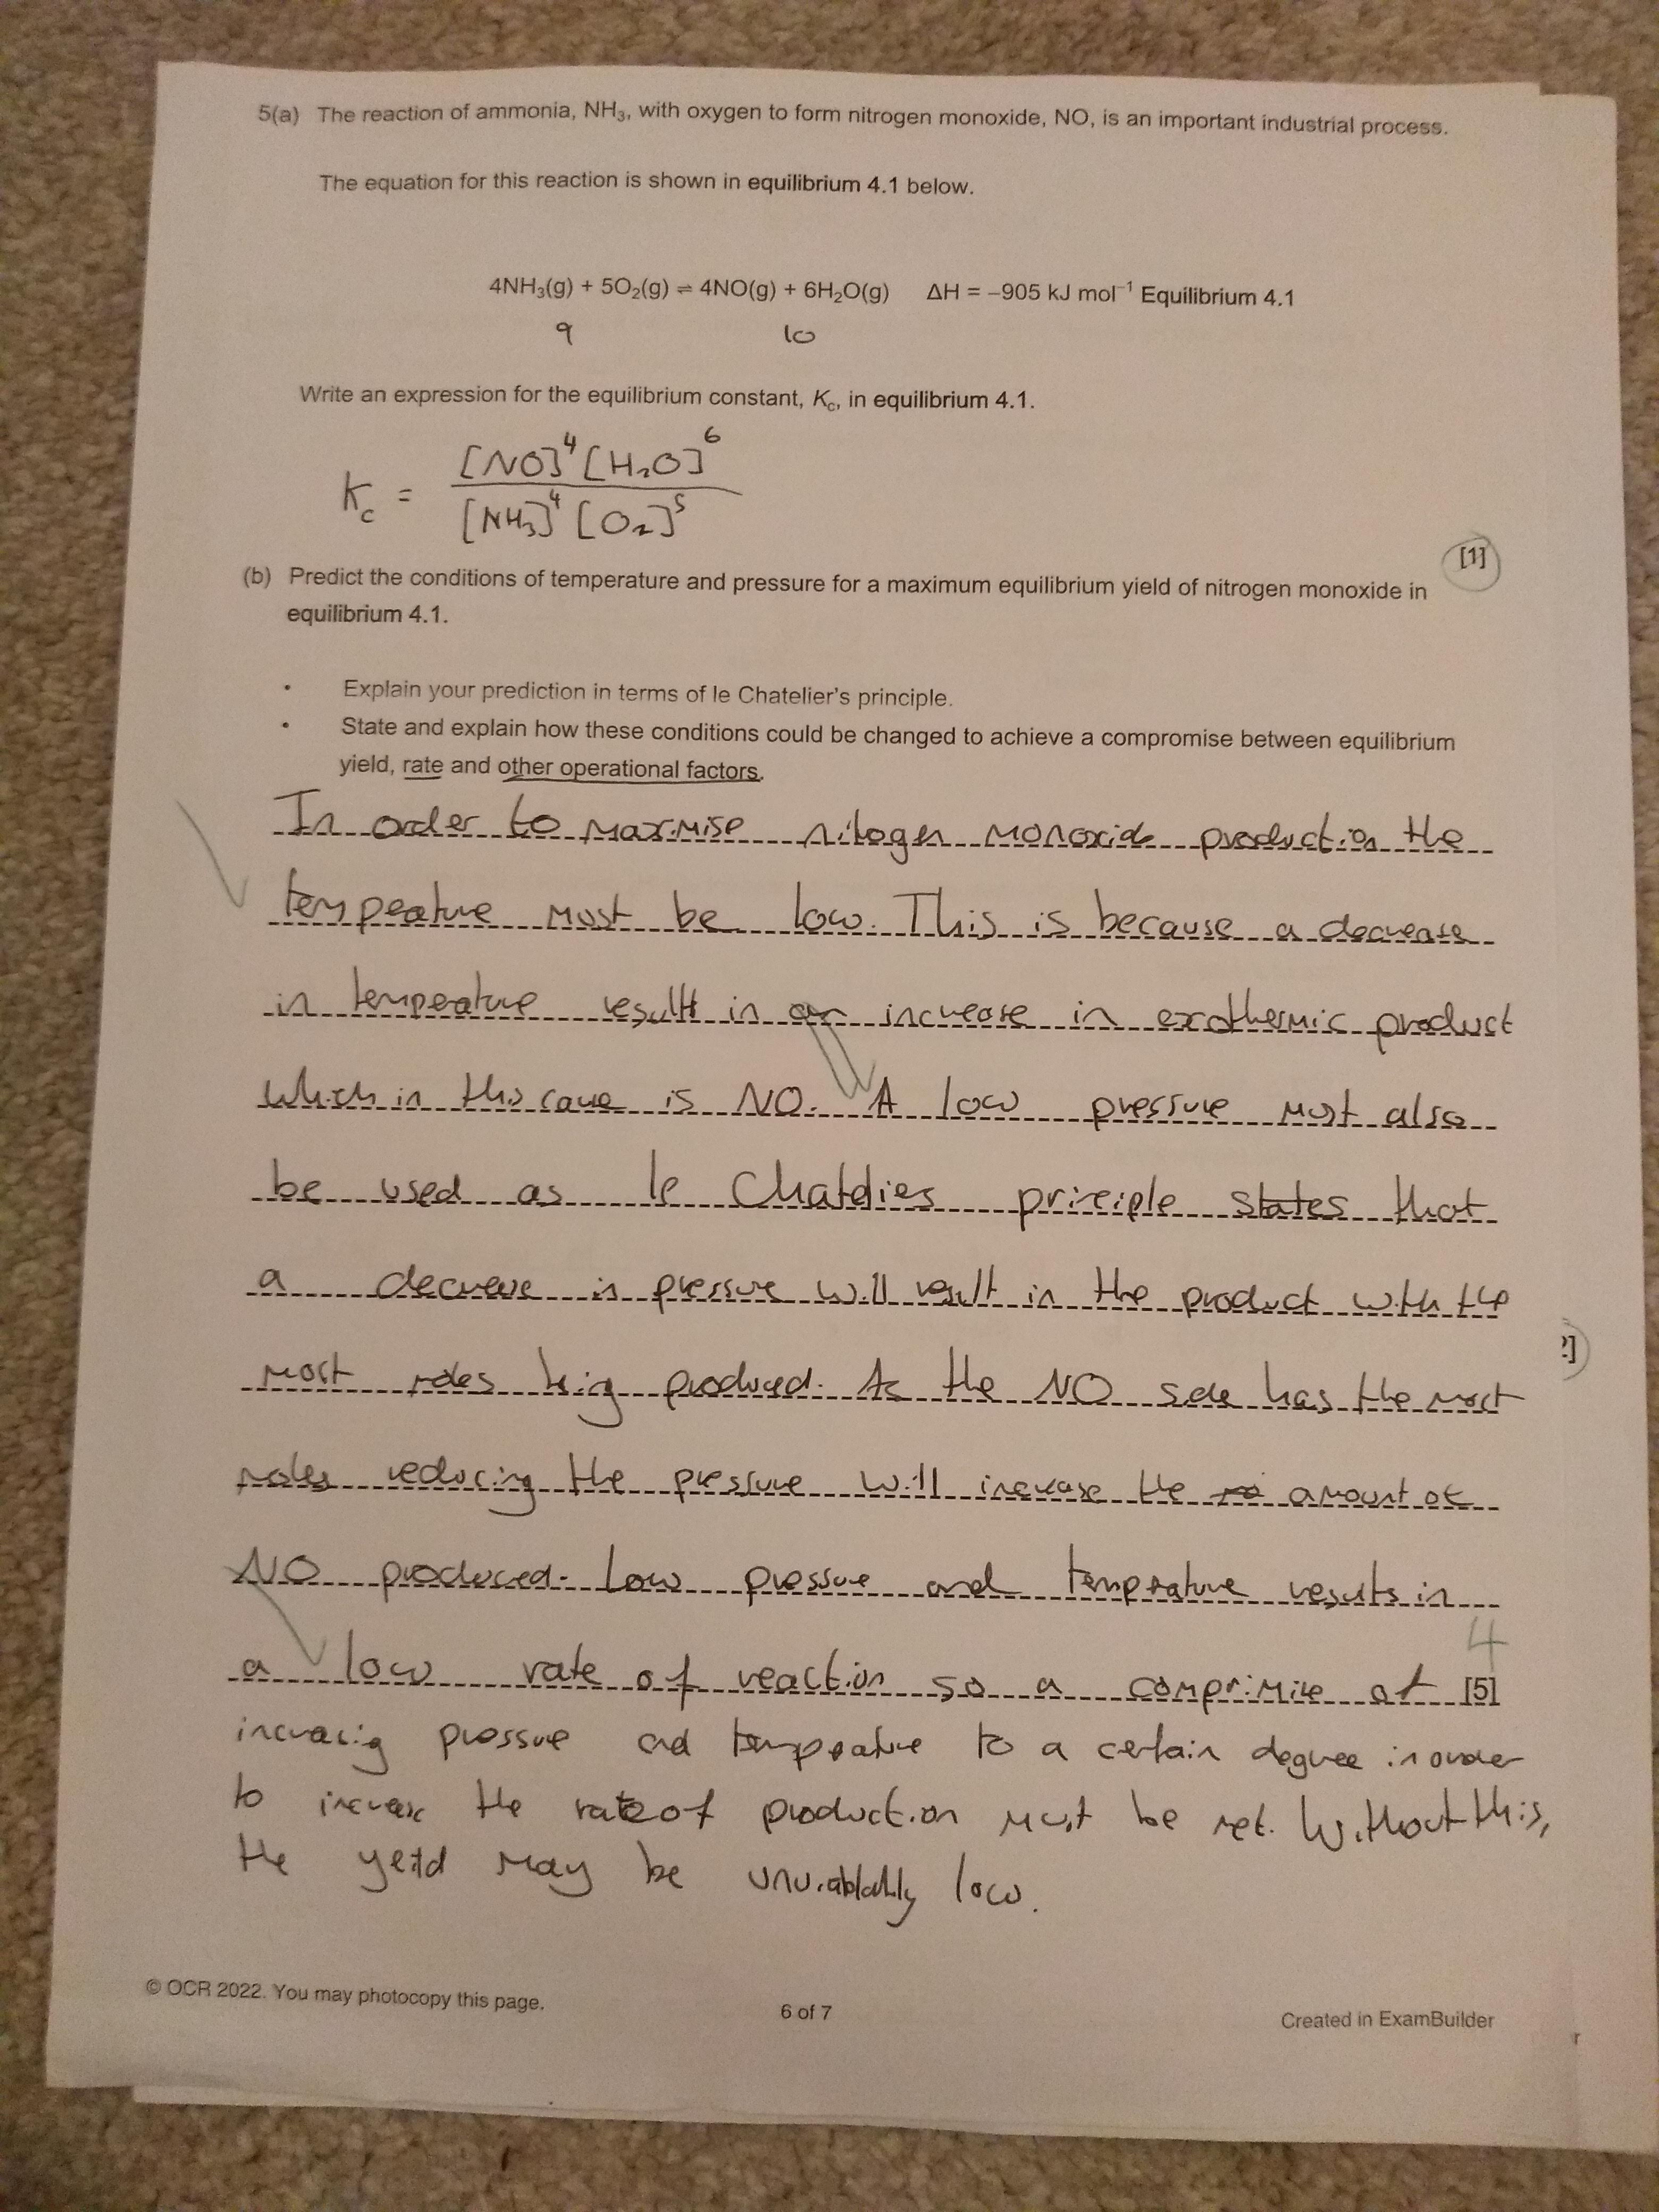 5(a) The reaction of ammonia, NH₃, with oxygen to form nitrogen monoxide, NO, is an important industrial process.
The equation for this reaction is shown in equilibrium 4.1 below.
4NH₃(g) + 5O₂(g) ⇌ 4NO(g) + 6H₂O(g) ΔH = −905 kJ mol⁻¹ Equilibrium 4.1
9 10
Write an expression for the equilibrium constant, Kc, in equilibrium 4.1.
[NO]⁴ [H₂O]⁶
Kc =
[NH₃]⁴ [O₂]⁵
[1]
(b) Predict the conditions of temperature and pressure for a maximum equilibrium yield of nitrogen monoxide in
equilibrium 4.1.
• Explain your prediction in terms of le Chatelier's principle.
• State and explain how these conditions could be changed to achieve a compromise between equilibrium
yield, rate and other operational factors.
In order to maximise nitogen monoxide production the
tempeature must be low. This is because a decrease
in tempeature results in an increase in exothermic product
which in this case is NO. A low pressure must also
be used as le Chatelies principle states that
a decrease in pressure will result in the product with the
most moles being produced. As the NO side has the most
moles reducing the pressure will increase the amount of
NO produced. Low pressure and temperature results in
4
a low rate of reaction so a comprimise of [5]
increasing pressure and tempeature to a certain degree in order
to increase the rate of production must be met. Without this,
the yeild may be low.
© OCR 2022. You may photocopy this page.
6 of 7
Created in ExamBuilder